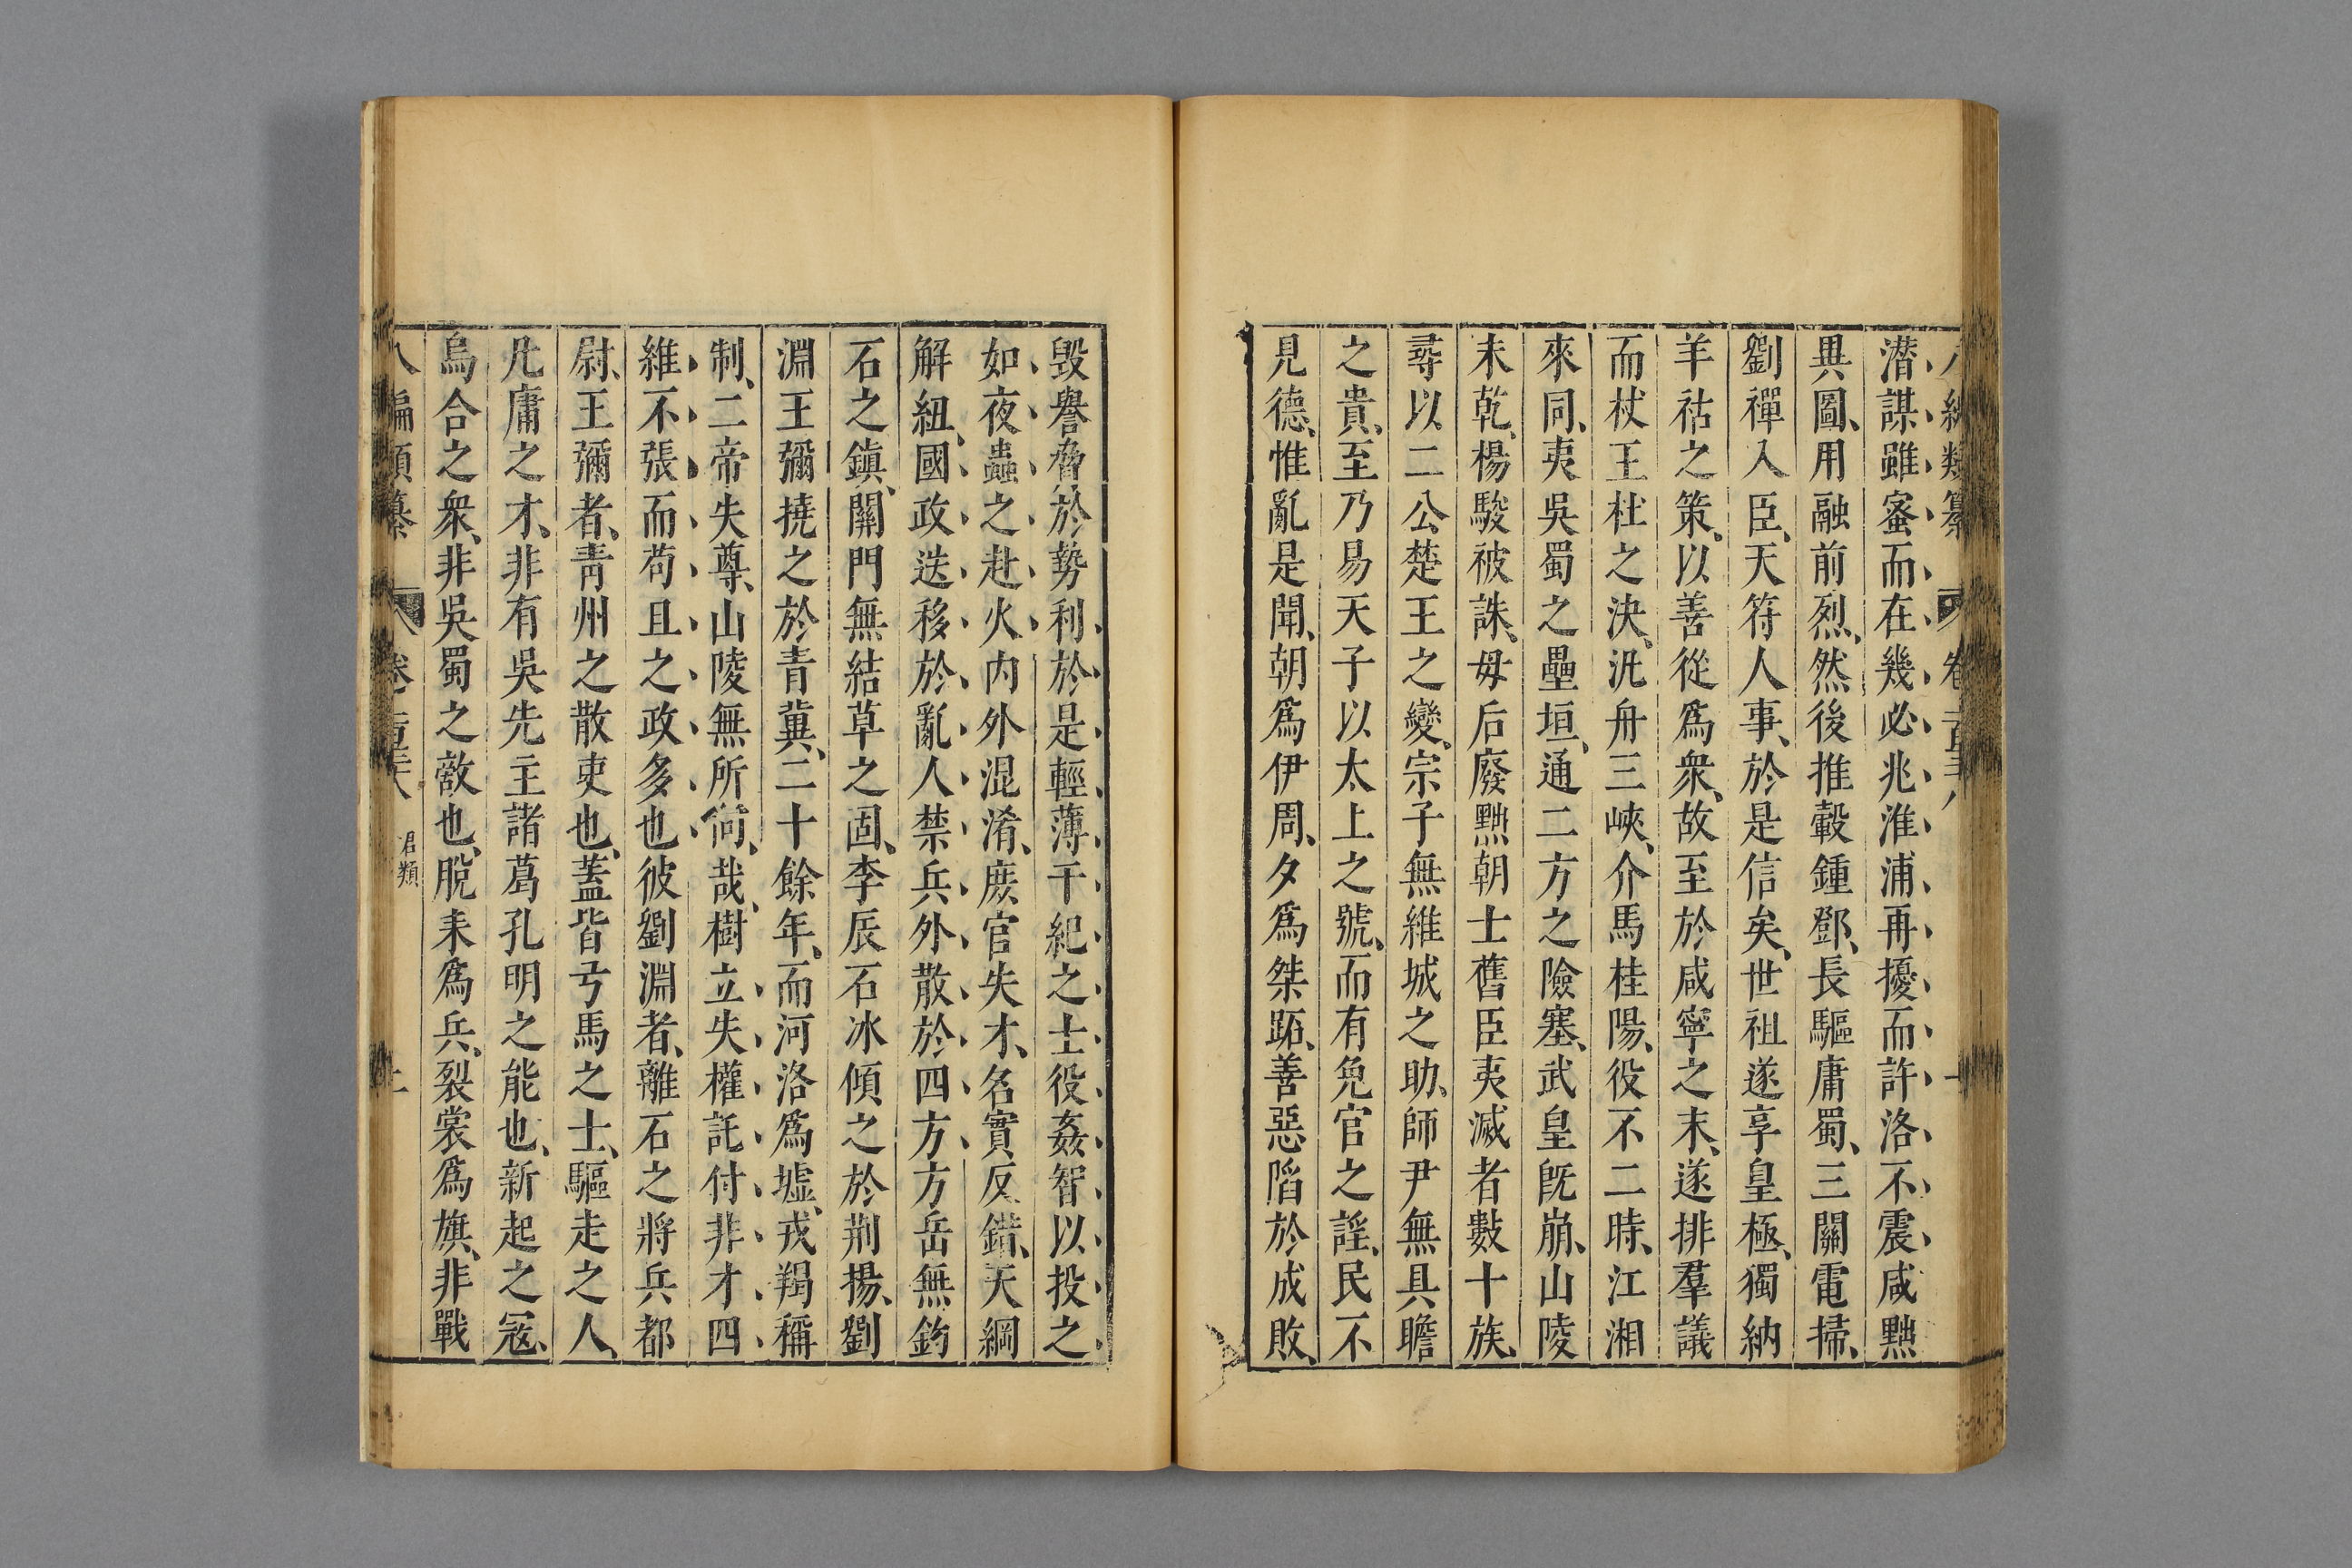 潛謀雖蜜而在幾必兆淮浦再擾而許洛不震咸黜
異圖、用融前烈、然後推轂鍾鄧、長驅庸蜀、三關電掃、
劉禪入臣、天符人事、於是信矣、世祖遂享皇極、獨納
羊祜之策、以善從爲衆、故至於咸寧之末、遂排羣議
而杖王杜之決、汎舟三峽、介馬桂陽、役不二時、江湘
來同、夷吳蜀之壘垣、通二方之險塞、武皇旣崩、山陵
未乾、楊駿被誅、毋后廢黜朝士舊臣夷滅者數十族、
尋以二公楚王之變、宗子無維城之助、師尹無具瞻
之貴、至乃易天子以太上之號、而有免官之謡、民不
見德、惟亂是聞、朝爲伊周、夕爲桀跖、善惡陷於成敗、
毀譽脅於勢利於是輕薄干紀之士役姦智以投之
如夜蟲之赴火内外混淆、庶官失才、名實反錯、天綱
解紐、國政迭移於亂人禁兵外散於四方、方岳無鈞
石之鎮、關門無結草之固、李辰石冰傾之於荆揚、劉
淵王彌撓之於青冀、二十餘年、而河洛爲墟、戎羯稱
制、二帝失尊、山陵無所、何、哉、樹立失權託付非才四
維不張而苟且之政多也彼劉淵者、離石之將兵都
尉、王彌者、靑州之散吏也、蓋皆弓馬之士、驅走之人、
凡庸之才、非有吳先主諸葛孔明之能也、新起之寇、
烏合之衆、非吳蜀之敵也、脫耒爲兵、裂裳爲旗、非戰
八編類纂 卷 君類